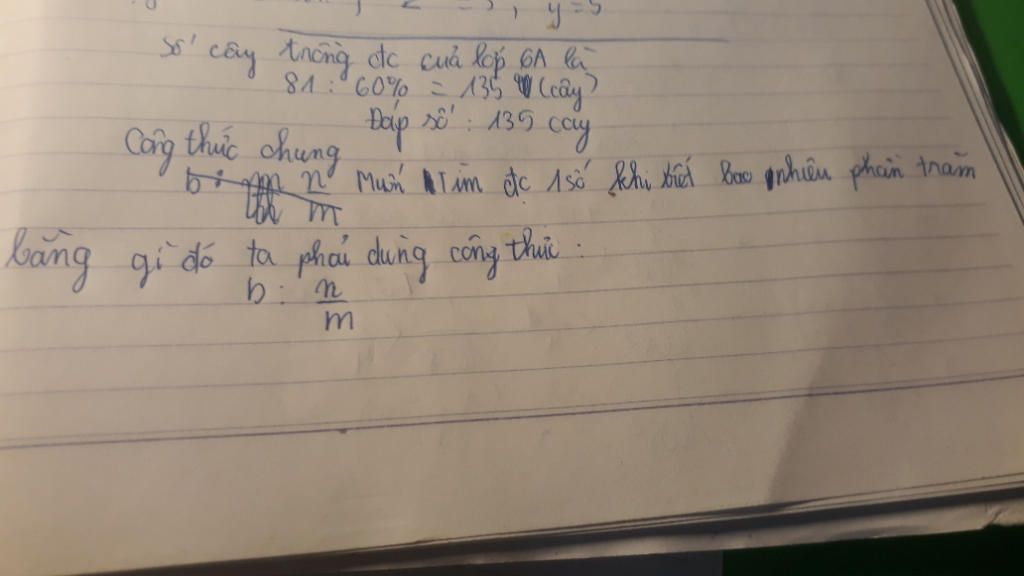 y = 5
Số cây trồng đc của lớp 6A là
81 : 60% = 135 (cây)
Đáp số : 135 cay
Công thức chung
b : n/m Muốn Tìm đc 1 số khi biết bao nhiêu phần trăm
bằng gì đó ta phải dùng công thức :
b : n/m